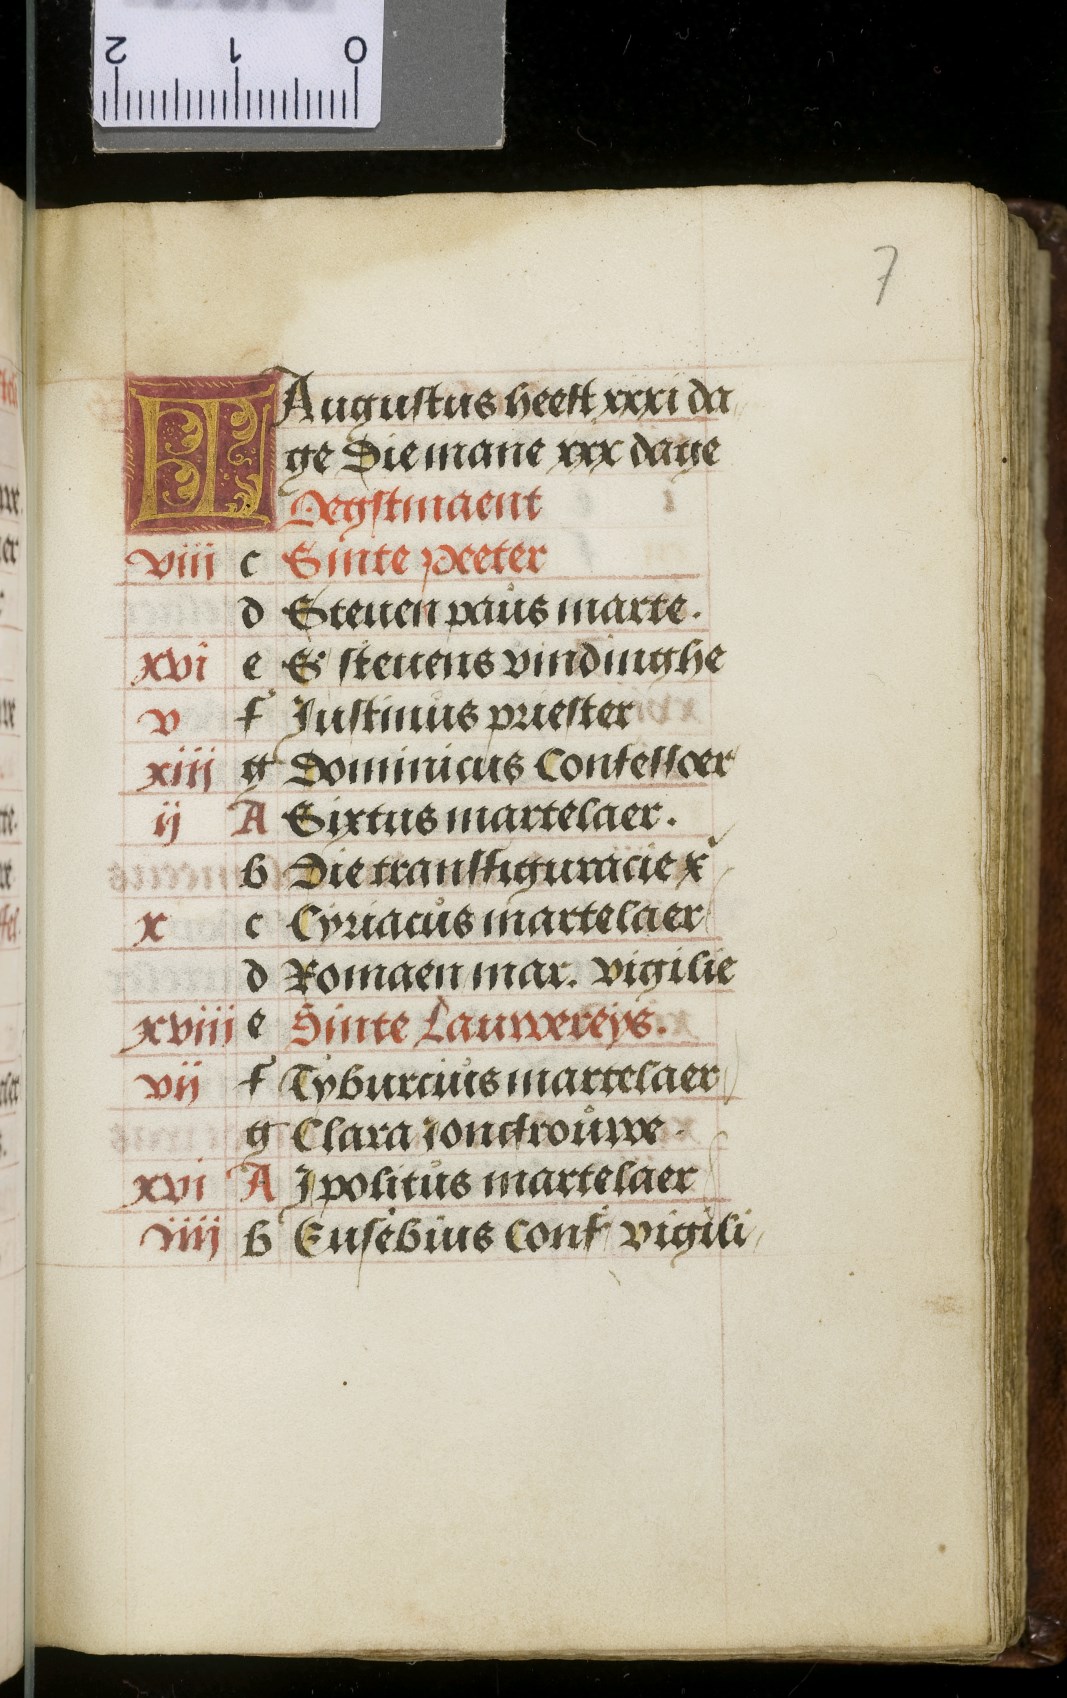 2 1 0
7
KL Augustus heeft xxxi da
ge Die mane xxx dage
Oegstmaent
viii c Sinte peeter
d Steuen paus marte.
xvi e S steuens vindinghe
v f Justinus priester
xiii g Dominicus Confessoer
ij A Sixtus martelaer.
b Die transfiguracie x
x c Cyriacus martelaer
d Romaen mar. vigilie
xviii e Sinte Lauwereys.
vij f Tyburcius martelaer
g Clara ioncfrouwe.
xvi A Jpolitus martelaer
iiij b Eusebius Conf vigili